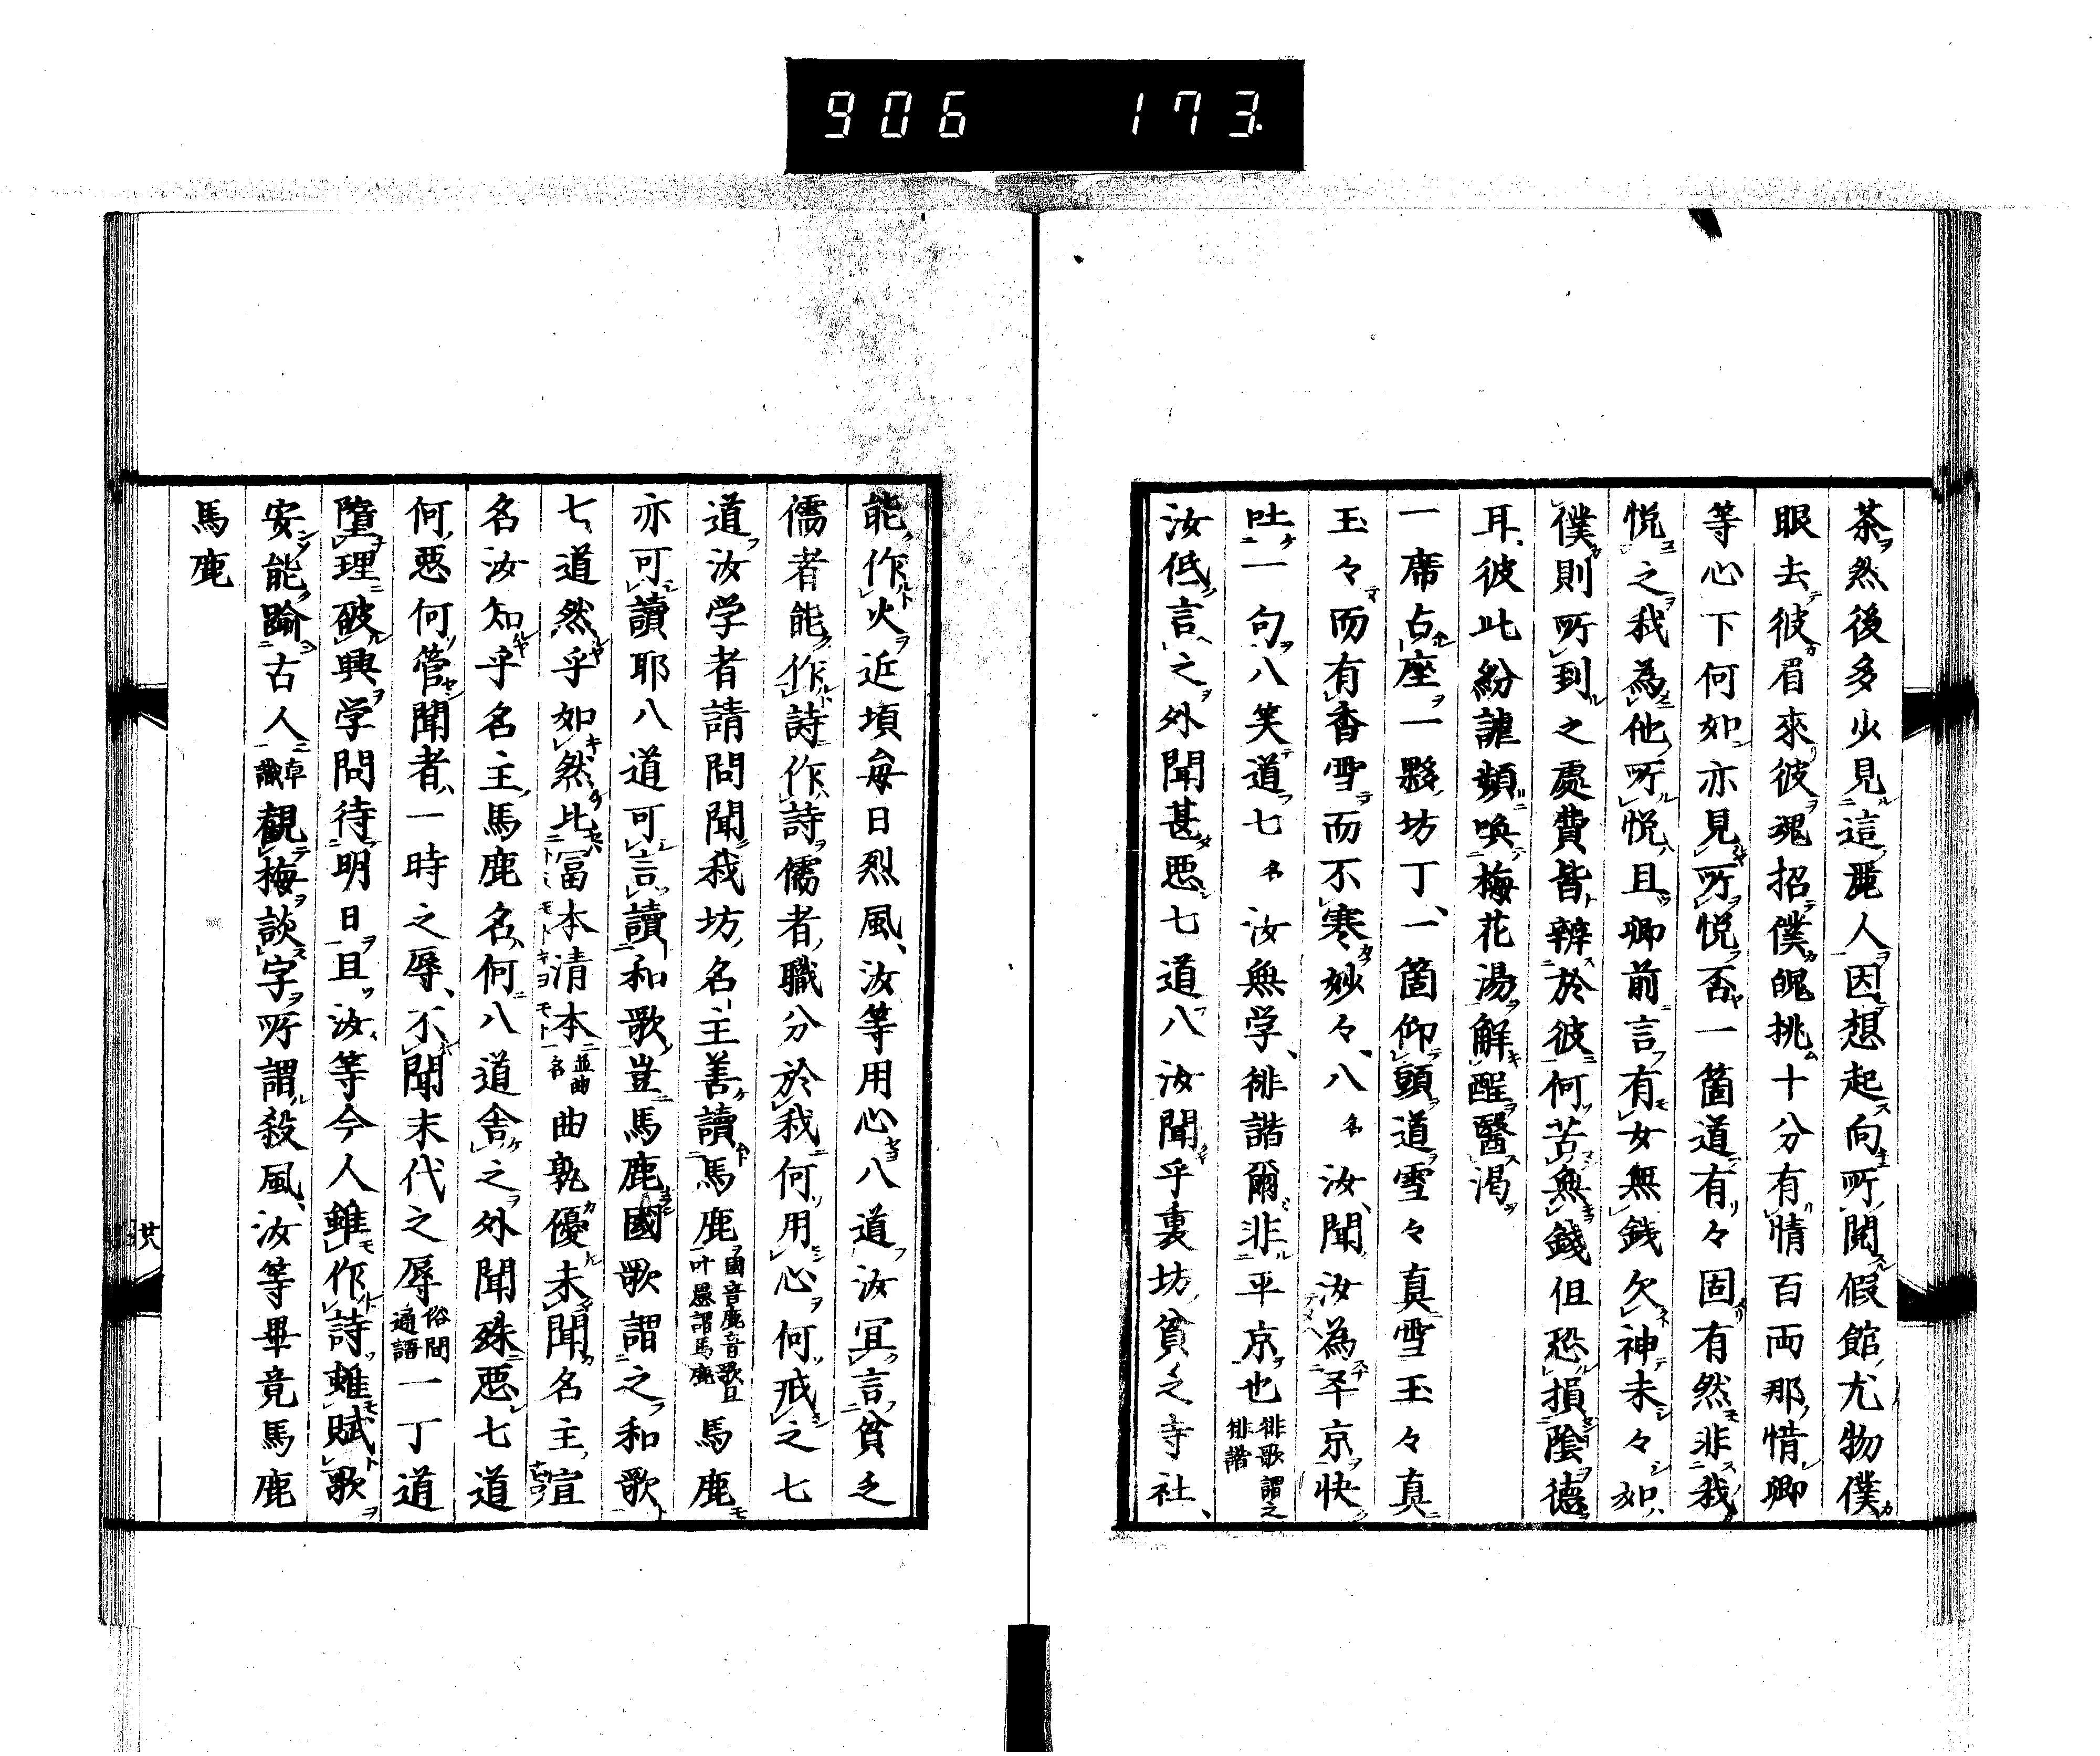 906 173
茶然後多少見這麗人因想起向所閲假館尤物僕
眼去彼眉來彼魂招僕魄挑十分有情百両那惜卿
等心下何如亦見所悦否一箇道有々固有然非我
悦之我為他所悦且卿前言有女無銭欠神未々如
僕則所到之處費皆辨於彼何苦無錢但恐損陰德
耳彼此紛謔頻喚梅花湯解酲醫渇
一席占座一夥坊丁一箇仰頭道雪々真雪玉々真
玉々而有香雪而不寒妙々八名汝聞汝為平京快
吐一句八笑道七名汝無学徘諧爾非平京也徘歌謂之徘諧
汝低言之外聞甚悪七道八汝聞乎裏坊貧乏寺社
能作火近頃毎日烈風汝等用心八道汝冝言貧乏
儒者能作詩作詩儒者職分於我何用心何戒之七
道汝学者請問聞我坊名主善讀馬鹿國音鹿音歌且叶愚謂馬鹿馬鹿
亦可讀耶八道可言讀和歌豈馬鹿國歌謂之和歌
七道然乎如然比冨本清本並曲名曲孰優未聞名主宣
名汝知乎名主馬鹿名何八道舎之外聞殊悪七道
何悪何管聞者一時之辱不聞末代之辱俗間通語一丁道
墮理破興学問待明日且汝等今人雖作詩雖賦歌
安能踰古人卓識觀梅談字所謂殺風汝等畢竟馬鹿
馬鹿